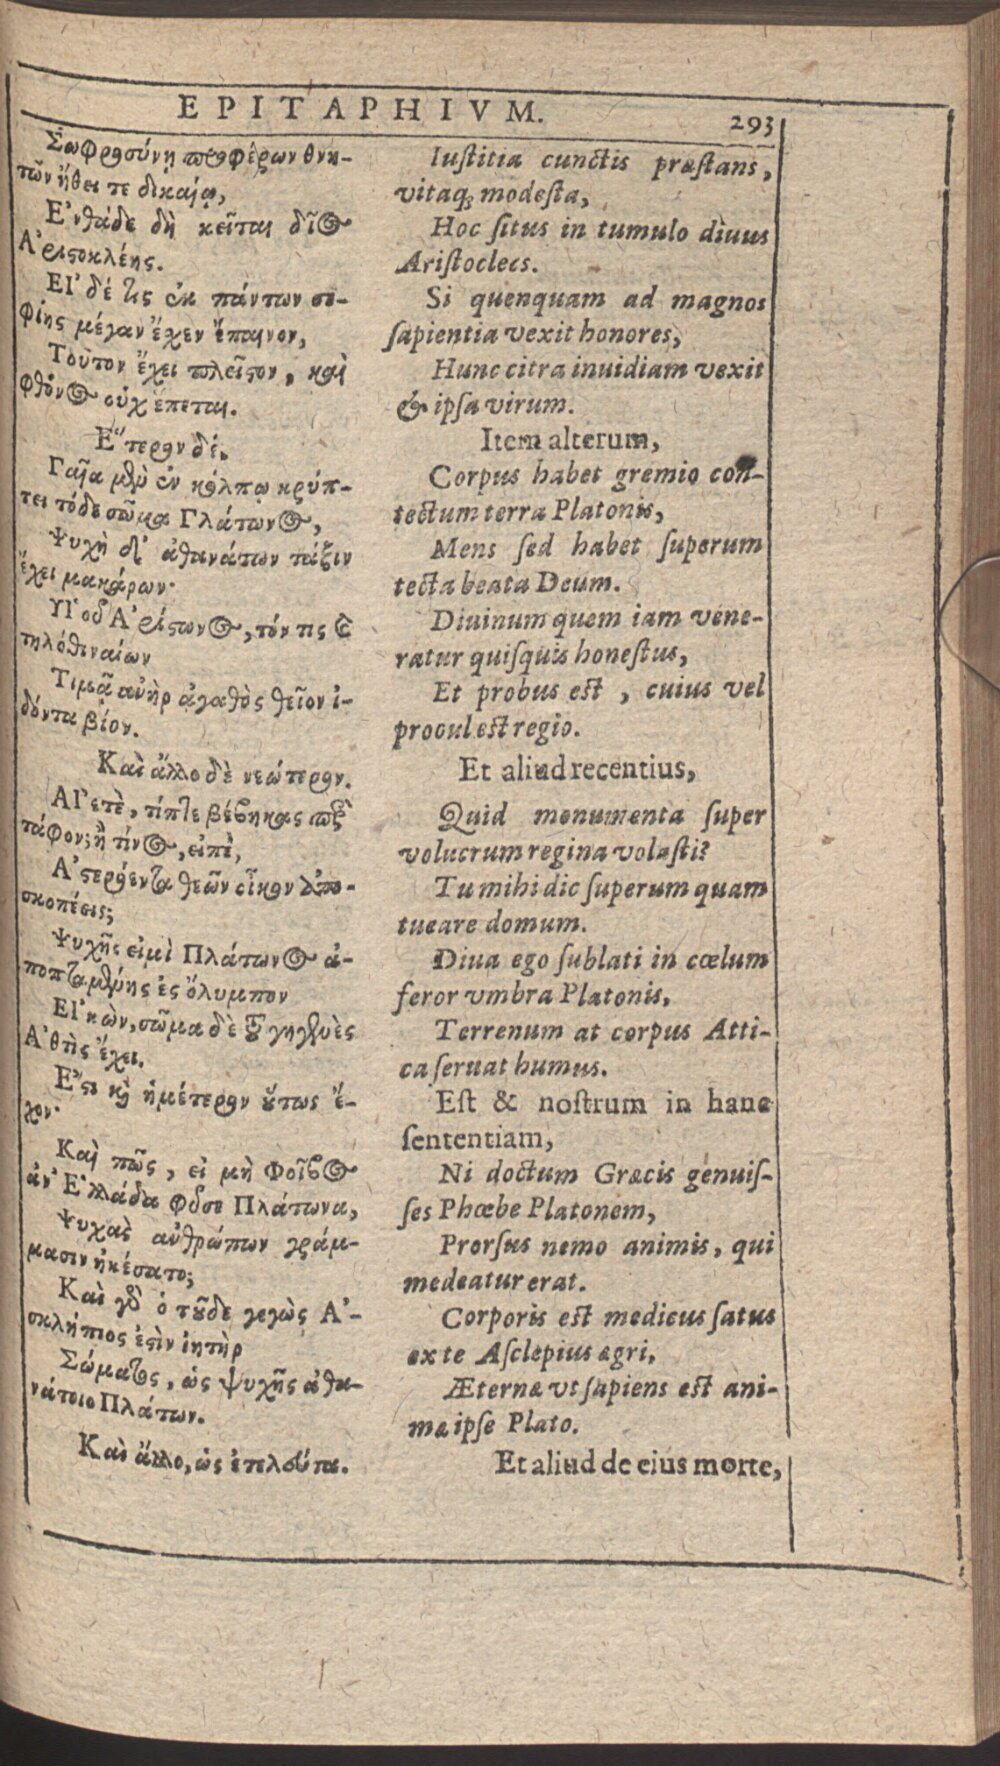 EPITAPHIVM.
293
Σωφροσύνη προφέρων θνη-
τῶν ἤθει τε δικαίῳ,
Ε'νθάδε δὴ κεῖται δῖος
Α'ριστοκλέης.
ΕΙ' δέ τις ἐκ πάντων σο-
φίης μέγαν ἔχεν ἔπαινον,
Τοῦτον ἔχει πλεῖστον, καὶ
φθόνος οὐχ ἕπεται.
Ε῞τερον δέ.
Γαῖα μὲν ἐν κόλπῳ κρύπ-
τει τόδε σῶμα Γλάτωνος,
Ψυχὴ δ' ἀθανάτων τάξιν
ἔχει μακάρων·
ΥΙ'οῦ Α'ρίστωνος, τόν τις καὶ
τηλόθι ναίων
Τιμᾷ ἀνὴρ ἀγαθὸς θεῖον ἰ-
δόντα βίον.
Καὶ ἄλλο δὲ νεώτερον.
ΑΙ'ετὲ, τίπτε βέβηκας ὑπὲρ
τάφον; ἢ τίνος, εἰπὲ,
Α'στερόεντα θεῶν οἶκον ἀπο-
σκοπέεις;
Ψυχῆς εἰμὶ Πλάτωνος ἀ-
ποπταμένης ἐς ὄλυμπον
ΕΙ'κὼν, σῶμα δὲ γῆ γηγενὲς
Α'θὶς ἔχει.
Ε῎στι καὶ ἡμέτερον οὕτως ἔ-
χον·
Καὶ πῶς, εἰ μὴ Φοῖβος
ἀν' Ε'λλάδα φῦσε Πλάτωνα,
Ψυχὰς ἀνθρώπων γράμ-
μασιν ἠκέσατο;
Καὶ γὰρ ὁ τοῦδε γεγὼς Α'-
σκλήπιος ἐστὶν ἰητὴρ
Σώματος, ὡς ψυχῆς ἀθα-
νάτοιο Πλάτων.
Καὶ ἄλλο, ὡς ἐτελεύτα.
Iuſtitia cunctis præſtans,
vitaq; modeſta,
Hoc ſitus in tumulo diuus
Ariſtoclees.
Si quenquam ad magnos
ſapientia vexit honores,
Hunc citra inuidiam vexit
& ipſa virum.
Item alterum,
Corpus habet gremio con-
tectum terra Platonis,
Mens ſed habet ſuperum
tecta beata Deum.
Diuinum quem iam vene-
ratur quiſquis honeſtus,
Et probus eſt, cuius vel
procul eſt regio.
Et aliud recentius,
Quid monumenta ſuper
volucrum regina volaſti?
Tu mihi dic ſuperum quam
tueare domum.
Diua ego ſublati in cœlum
feror vmbra Platonis,
Terrenum at corpus Atti-
ca ſeruat humus.
Eſt & noſtrum in hanc
ſententiam,
Ni doctum Græcis genuiſ-
ſes Phœbe Platonem,
Prorſus nemo animis, qui
medeatur erat.
Corporis eſt medicus ſatus
ex te Aſclepius ægri,
Æternæ vt ſapiens eſt ani-
mæ ipſe Plato.
Et aliud de eius morte,